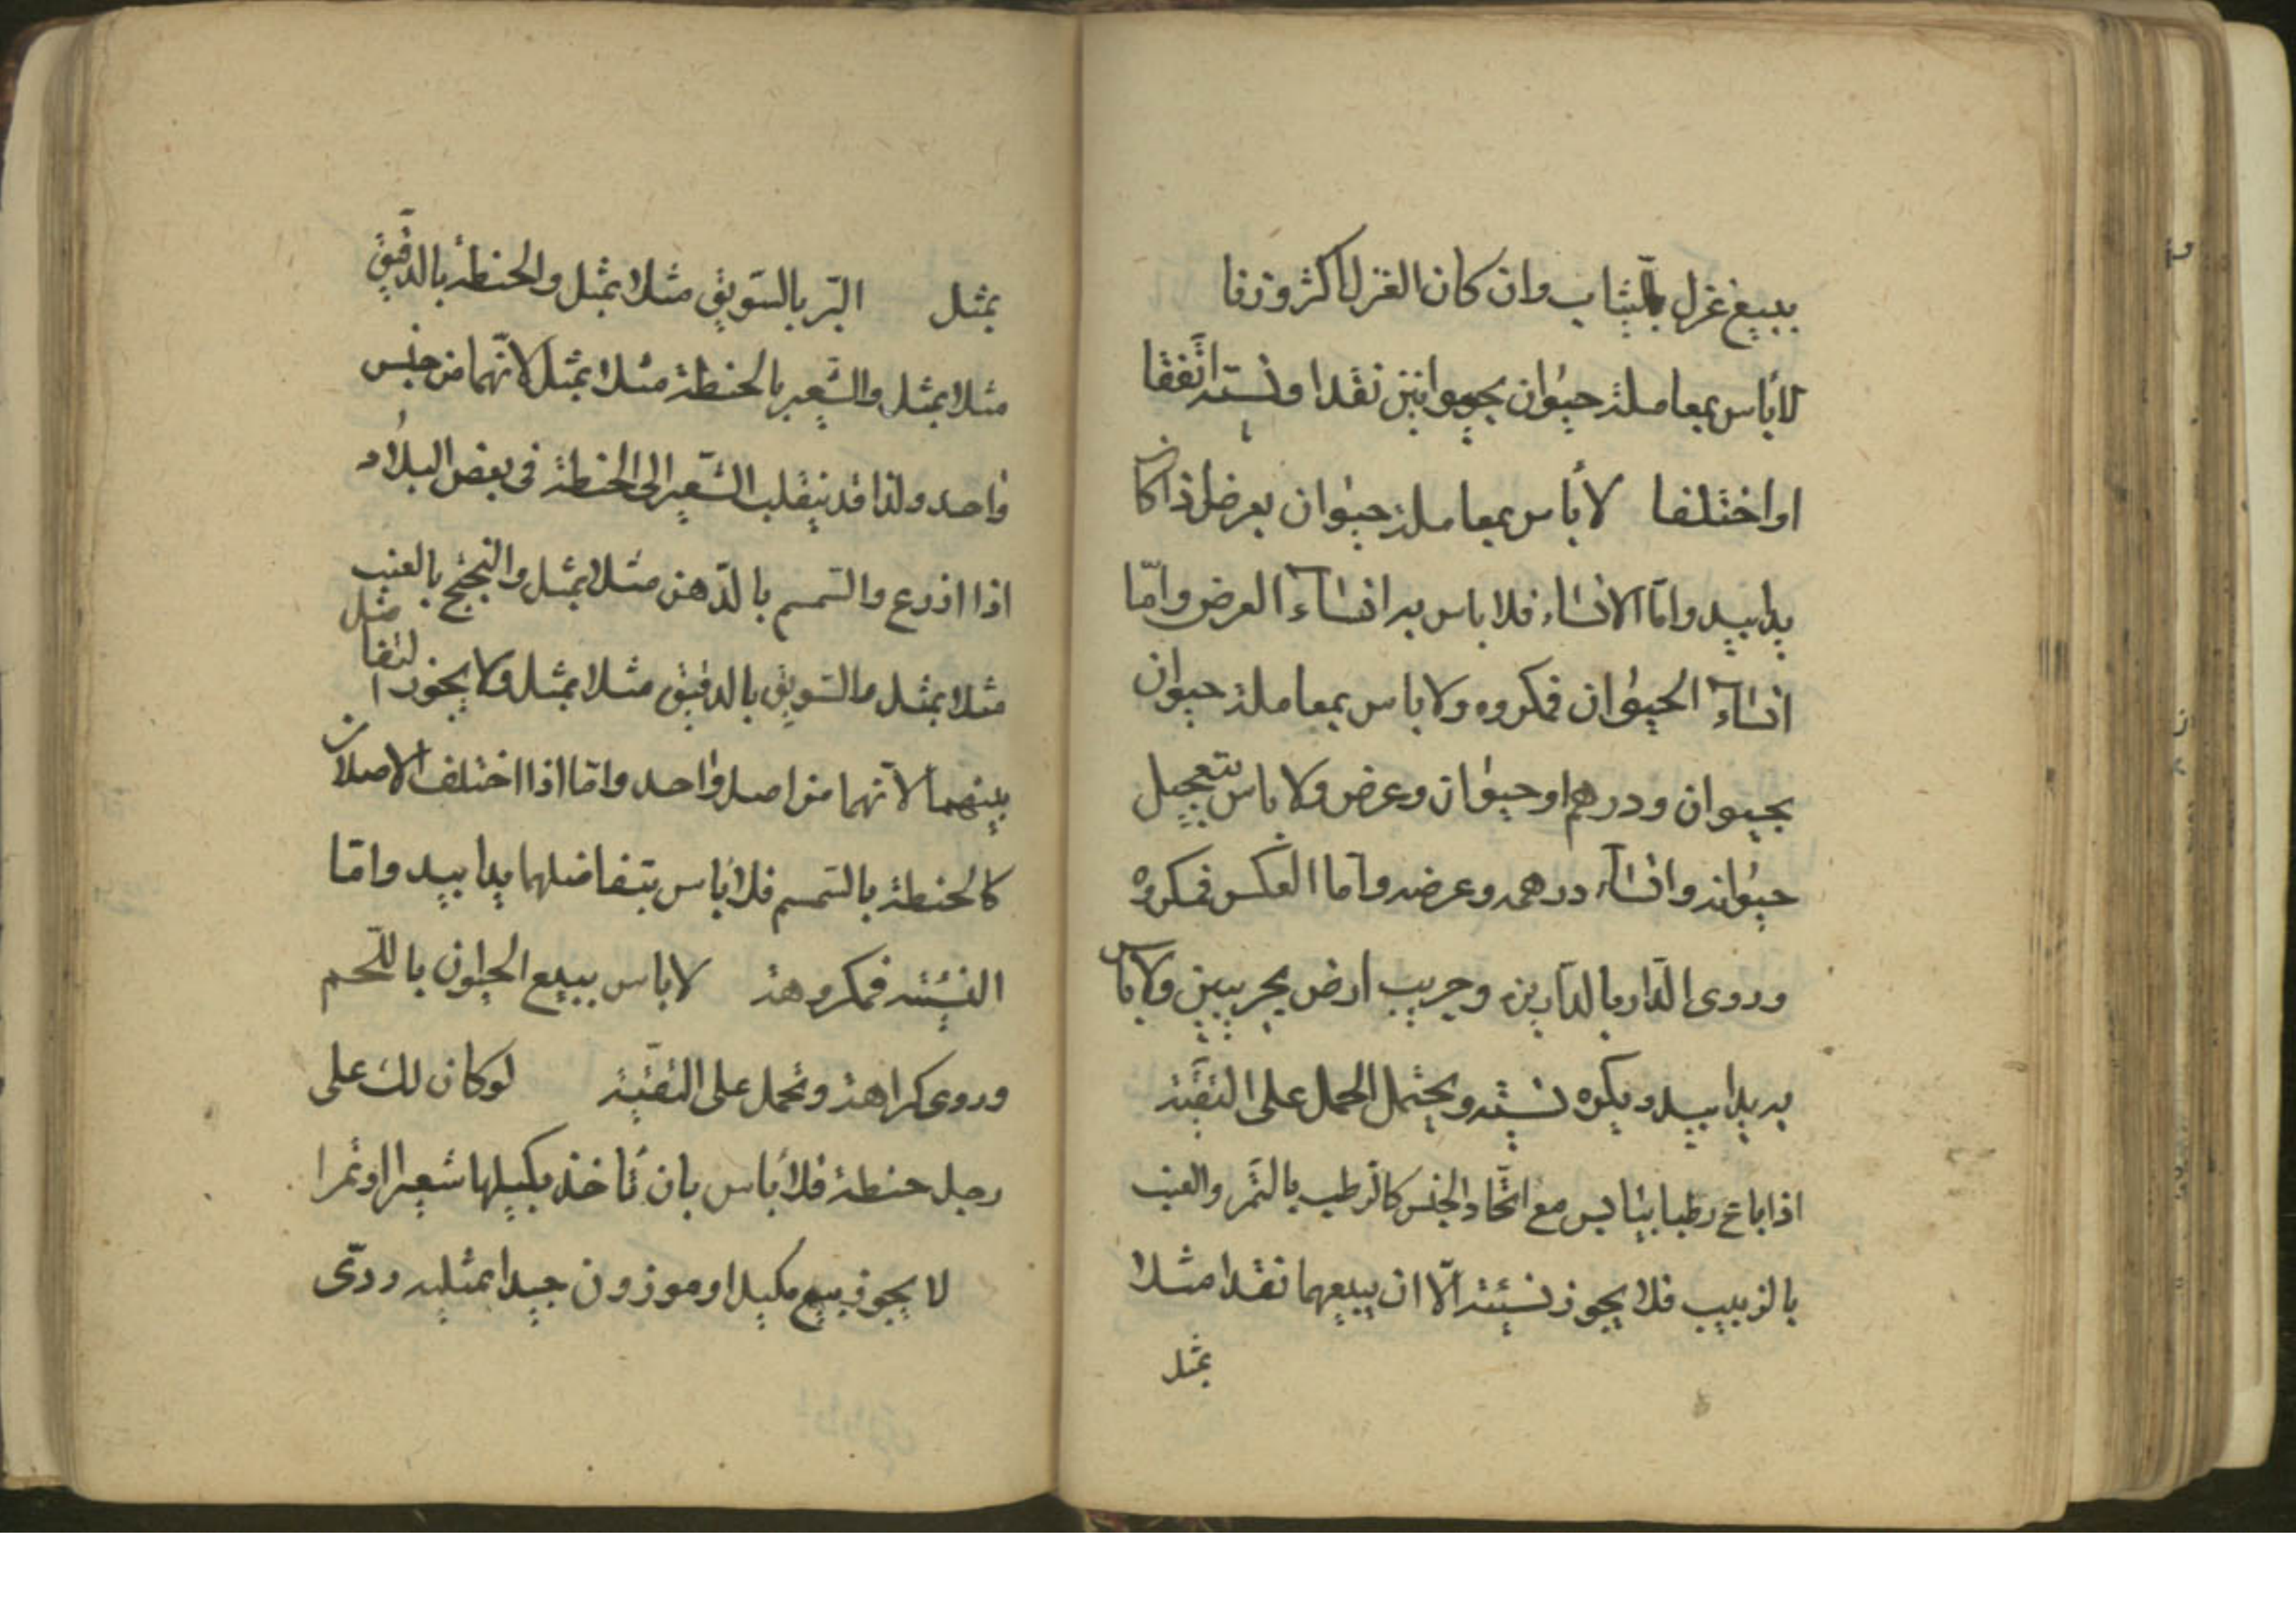 ببيع غزل بالثياب وان كان الغزل اكثر وزنا
لا بأس بمعاملة حيوان بحيوانين نقدا ونسية اتّفقا
او اختلفا لا بأس بمعاملة حيوان بعرض اذا كان
يدا بيد وامّا الانساء فلا باس به انساء العرض وامّا
انساء الحيوان فمكروه ولا باس بمعاملة حيوان
بحيوان ودرهم او حيوان وعرض ولا باس بتعجيل
حيوانه وانساء درهمه وعرضه وامّا العكس فمكروه
وروى الدّار بالدّارين وجريب ارض بجريبين ولا باس
به يدا بيد ويكره نسيّة ويحتمل الحمل على التّقيّة
اذا باع رطبا بيابس مع اتّحاد الجنس كالرّطب بالتّمر والعنب
بالزبيب فلا يجوز نسيئة الّا ان يبيعهما نقدا مثلا
بمثل
بمثل البّر بالسّويق مثلا بمثل والحنطة بالدّقيق
مثلا بمثل والشّعير بالحنطة مثلا بمثل لانّهما من جنس
واحد ولذا قد ينقلب الشّعير الى الحنطة فى بعض البلاد
اذا ازرع والسّمسم بالدّهن مثلا بمثل والبختج بالعنب
مثلا بمثل والسّويق بالدقيق مثلا بمثل ولا يجوز التفاضل
بينهما لانّهما من اصل واحد وامّا اذا اختلف الاصلان
كالحنطة بالسّمسم فلا بأس بتفاضلهما يدا بيد وامّا
النسيئة فمكروهة لا باس ببيع الحيوان باللّحم
وروى كراهة وتحمل على التّقيّة لو كان لك على
رجل حنطة فلا بأس بان تأخذ بكيلها شعيرا او تمرا
لا يجوز بيع مكيل او موزون جيدا بمثليه ردىّ